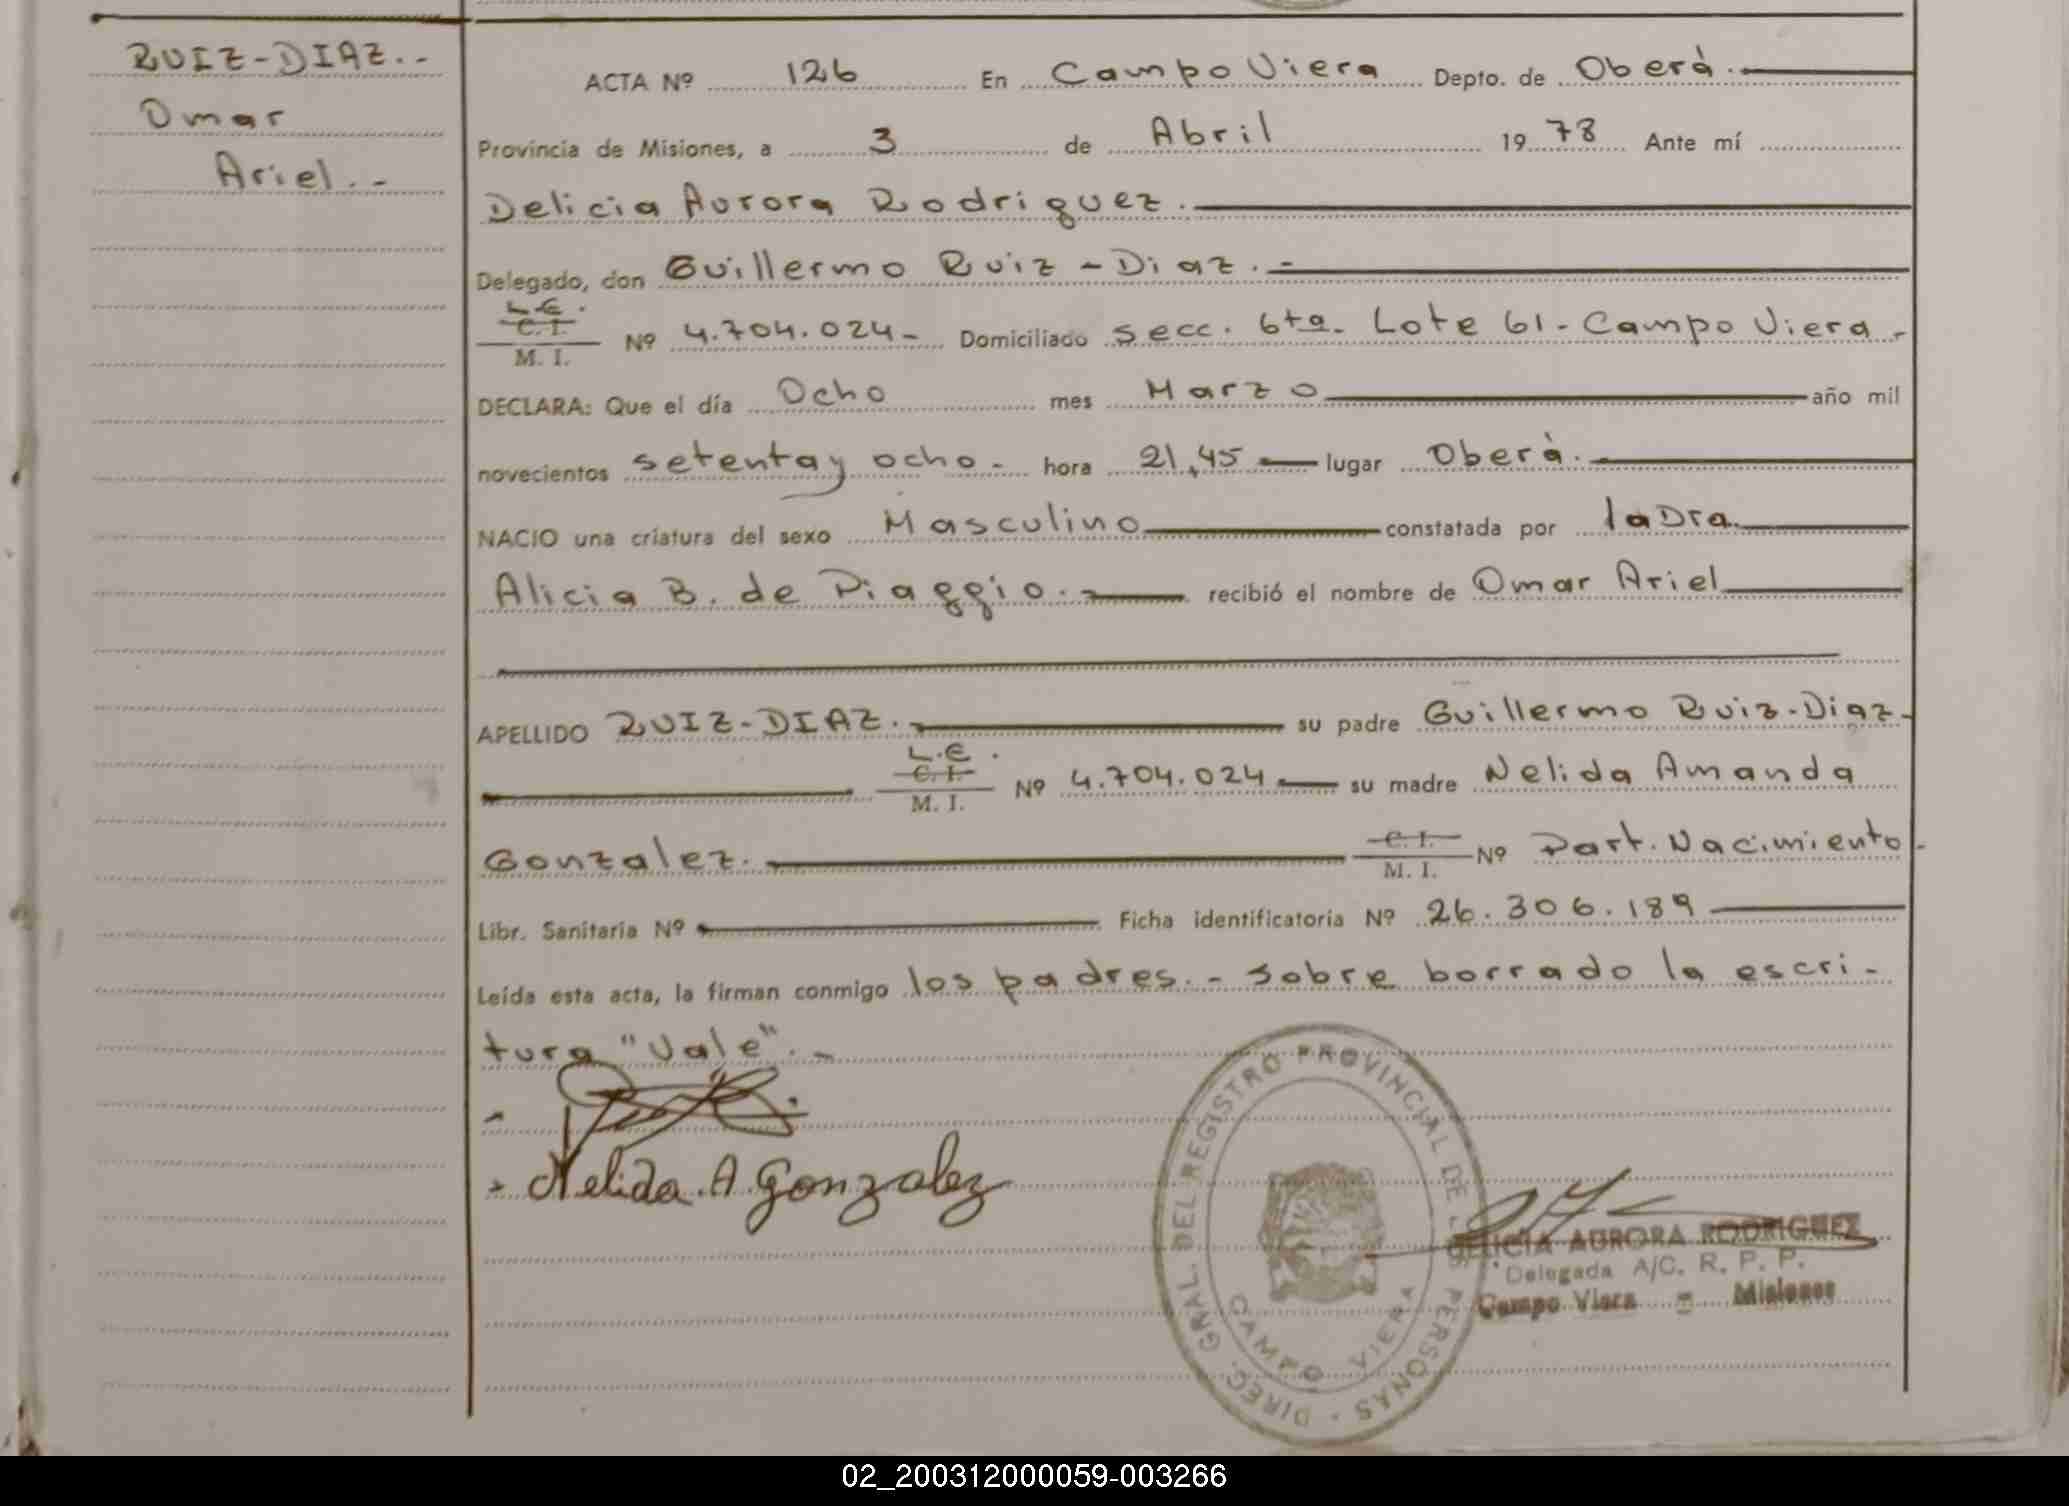 RUIZ-DIAZ.-
Omar
Ariel.-
ACTA Nº 126 En Campo Viera Depto. de Oberá.
Provincia de Misiones, a 3 de Abril 1978 Ante mí
Delicia Aurora Rodriguez.
Delegado, don Guillermo Ruiz-Diaz.-
L.E.
C. I.
M. I. Nº 4.704.024- Domiciliado secc. 6ta. Lote 61-Campo Viera.
DECLARA: Que el día Ocho mes Marzo año mil
novecientos setenta y ocho.- hora 21,45 lugar Oberá.
NACIO una criatura del sexo Masculino constatada por la Dra.
Alicia B. de Piaggio.- recibió el nombre de Omar Ariel
APELLIDO RUIZ-DIAZ.- su padre Guillermo Ruiz-Diaz-
L.E.
C. I.
M. I. Nº 4.704.024 su madre Nelida Amanda
Gonzalez. C. I. M. I. Nº Part. Nacimiento-
Libr. Sanitaria Nº Ficha identificatoria Nº 26.306.189
Leída esta acta, la firman conmigo los padres.- sobre borrado la escri-
tura "Vale".-
Nelida A Gonzalez
DIREC. GRAL. DEL REGISTRO PROVINCIAL DE LAS PERSONAS
CAMPO VIERA
DELICIA AURORA RODRIGUEZ
Delegada A/C. R. P. P.
Campo Viera = Misiones
02_200312000059-003266